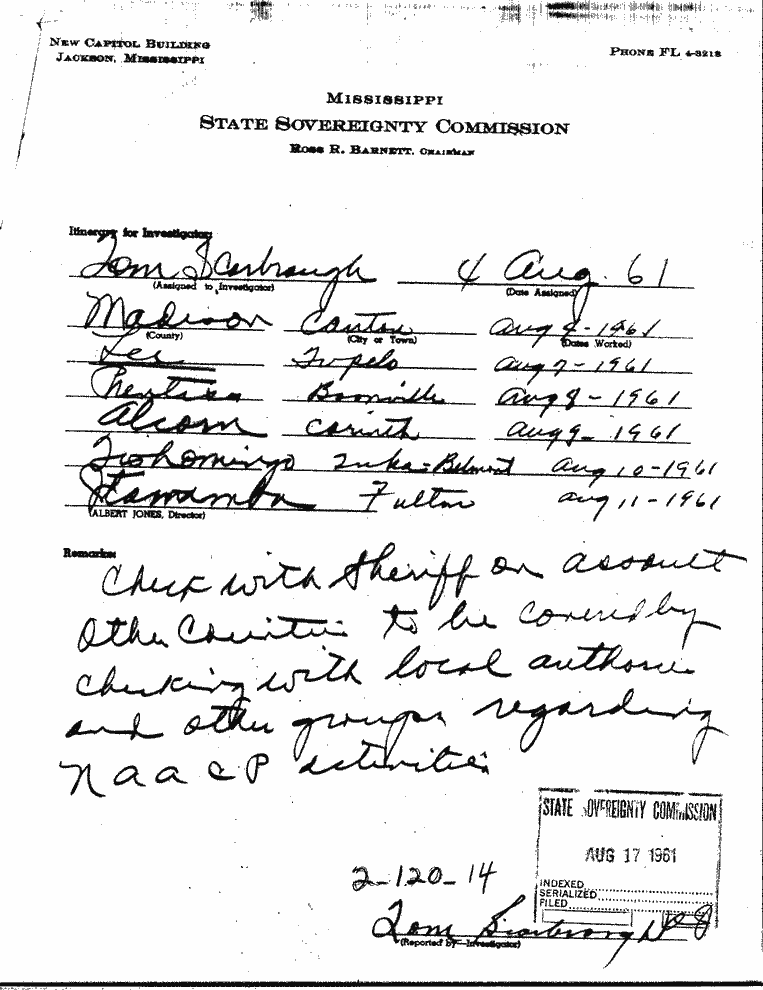 NEW CAPITOL BUILDING
JACKSON, MISSISSIPPI
PHONE FL 4-3218
MISSISSIPPI
STATE SOVEREIGNTY COMMISSION
ROSS R. BARNETT, CHAIRMAN
Itinerary for Investigator:
Tom Scarbrough 4 Aug. 61
(Assigned to Investigator) (Date Assigned)
Madison Canton Aug 4-1961
(County) (City or Town) (Dates Worked)
Lee Tupelo Aug 7-1961
Prentiss Boonville Aug 8-1961
Alcorn Corinth Aug 9-1961
Tishomingo Iuka-Belmont Aug 10-1961
Itawamba Fulton Aug 11-1961
(ALBERT JONES, Director)
Remarks:
Check with Sheriff on assault
Other Counties to be covered by
checking with local
and other groups regarding
NAACP activities
STATE SOVEREIGNTY COMMISSION
AUG 17 1961
INDEXED
SERIALIZED
FILED
2-120-14
Tom Scarbrough
(Reported by Investigator)